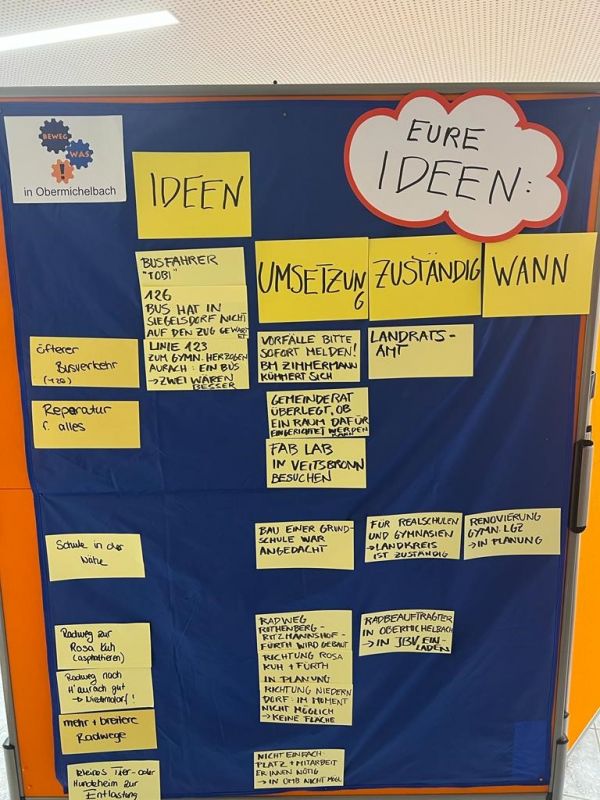 BEWEG
WAS
!
in Obermichelbach
EURE
IDEEN:
IDEEN
UMSETZUNG
ZUSTÄNDIG
WANN
BUSFAHRER
"TOBI"
126
BUS HAT IN
SIEGELSDORF NICHT
AUF DEN ZUG GEWARTET
Öfterer
Busverkehr
(126)
LINIE 123
ZUM GYMN. HERZOGEN
AURACH: EIN BUS
→ ZWEI WÄREN
BESSER
VORFÄLLE BITTE
SOFORT MELDEN!
BM ZIMMERMANN
KÜMMERT SICH
LANDRATS-
AMT
Reparatur
f. alles
GEMEINDERAT
ÜBERLEGT, OB
EIN RAUM DAFÜR
EINGERICHTET WERDEN
KANN
FAB LAB
IN VEITSBRONN
BESUCHEN
Schule in der
Nähe
BAU EINER GRUND-
SCHULE WAR
ANGEDACHT
FÜR REALSCHULEN
UND GYMNASIEN
→ LANDKREIS
IST ZUSTÄNDIG
RENOVIERUNG
GYMN. LGZ
→ IN PLANUNG
Radweg zur
Rosa Kuh
(asphaltieren)
Radweg nach
H'aurach gut
→ Niederndorf!
mehr + breitere
Radwege
RADWEG
ROTHENBERG-
RITZMANNSHOF-
FÜRTH WIRD GEBAUT
RICHTUNG ROSA
KUH + FÜRTH
IN PLANUNG
RICHTUNG NIEDERN
DORF: IM MOMENT
NICHT MÖGLICH
→ KEINE FLÄCHE
RADBEAUFTRAGTER
IN OBERMICHELBACH
→ IN JBV EIN-
LADEN
kleines Tier- oder
Hundeheim zur
Entlastung
NICHT EINFACH:
PLATZ + MITARBEIT
ER:INNEN NÖTIG
→ IN OMB NICHT MÖGL